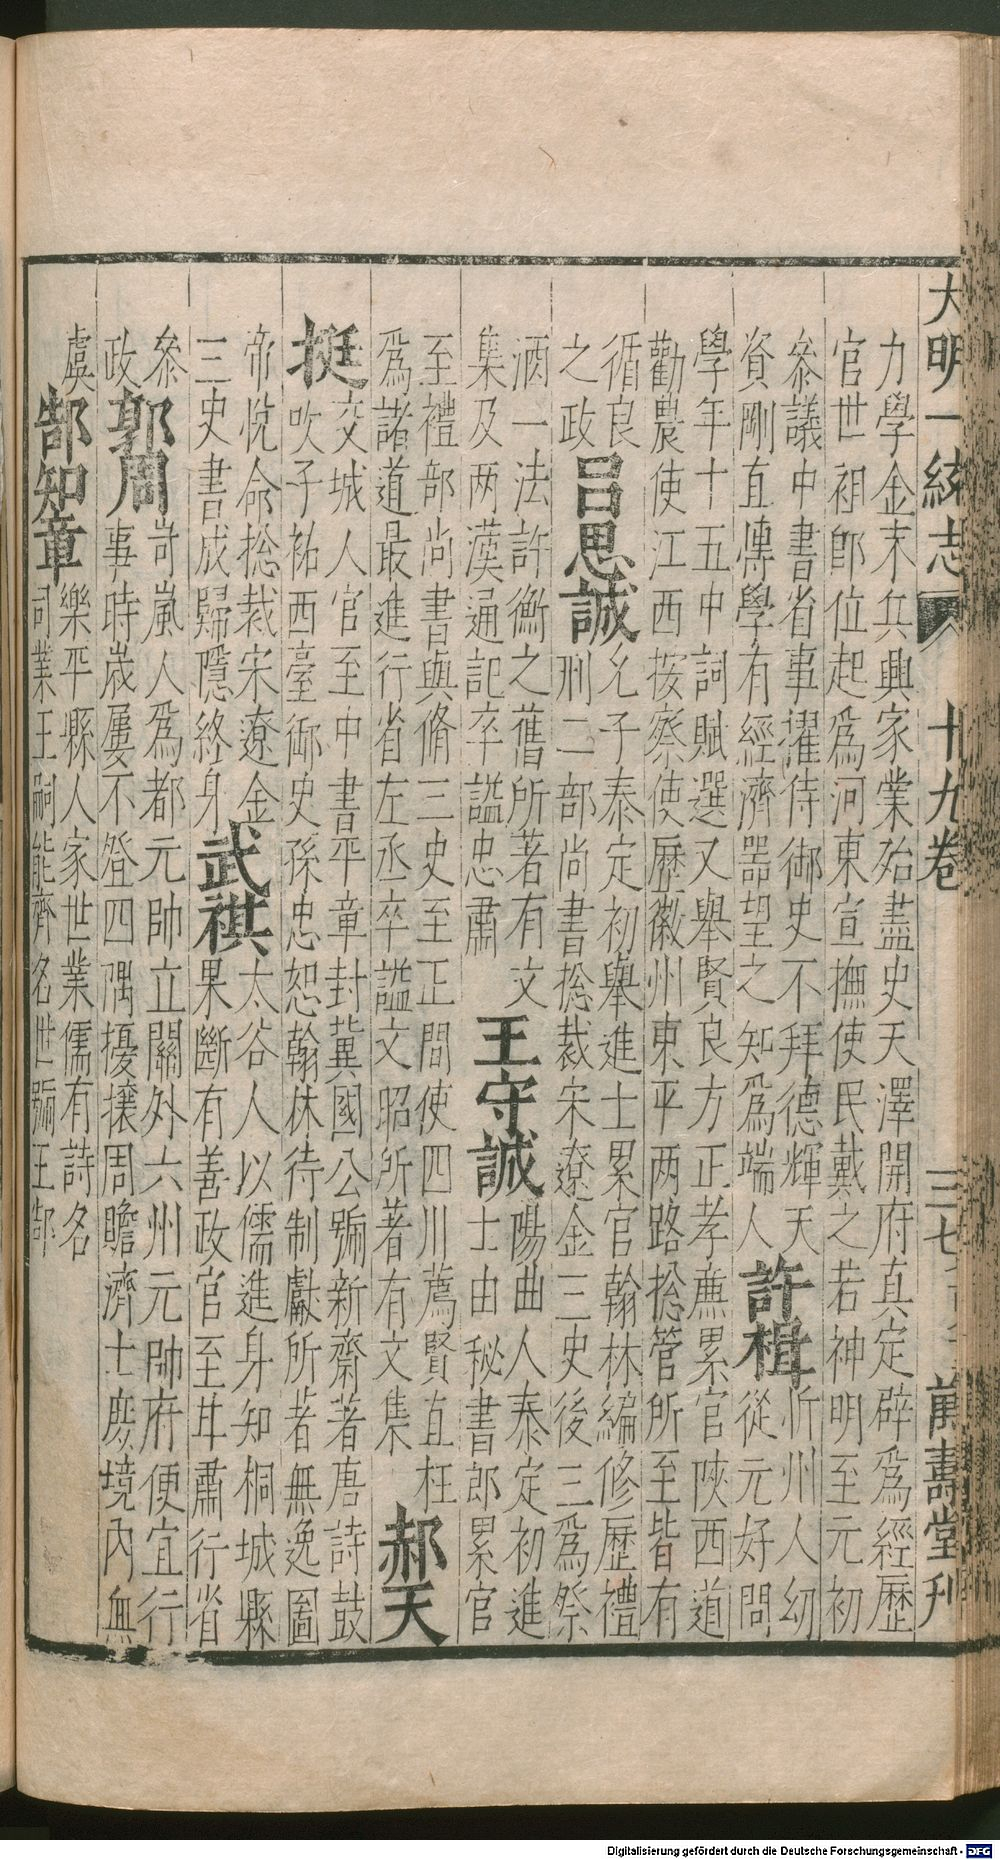 大明一統志 十九卷 萬壽堂刊
力學金末兵興家業殆盡史天澤開府真定辟爲經歷
官世祖卽位起爲河東宣撫使民戴之若神明至元初
叅議中書省事濯待御史不拜德輝天
資剛直博學有經濟器望之知爲端人
許楫
忻州人幼
從元好問
學年十五中詞賦選又舉賢良方正孝㢘累官陝西道
勸農使江西按察使歷徽州東平两路捴管所至皆有
循良
之政
呂思誠
允子泰定初舉進士累官翰林編修歷禮
刑二部尚書捴裁宋遼金三史後三爲祭
酒一法許衡之舊所著有文
集及两漢通記卒謚忠肅
王守誠
陽曲人泰定初進
士由秘書郎累官
至禮部尚書與脩三史至正間使四川薦賢直枉
爲諸道最進行省左丞卒謚文昭所著有文集
郝天
挺
交城人官至中書平章封冀國公號新齋著唐詩鼓
吹子祐西臺御史孫忠恕翰林待制獻所著無逸圖
帝悅命捴裁宋遼金
三史書成歸隱終身
武祺
太谷人以儒進身知桐城縣
果斷有善政官至甘肅行省
叅
政
郭周
岢嵐人爲都元帥立關外六州元帥府便宜行
事時歲屢不登四隅擾攘周贍濟士庻境內無
虞
郜知章
樂平縣人家世業儒有詩名
同業王嗣能齊名世號王郜
Digitalisierung gefördert durch die Deutsche Forschungsgemeinschaft - DFG